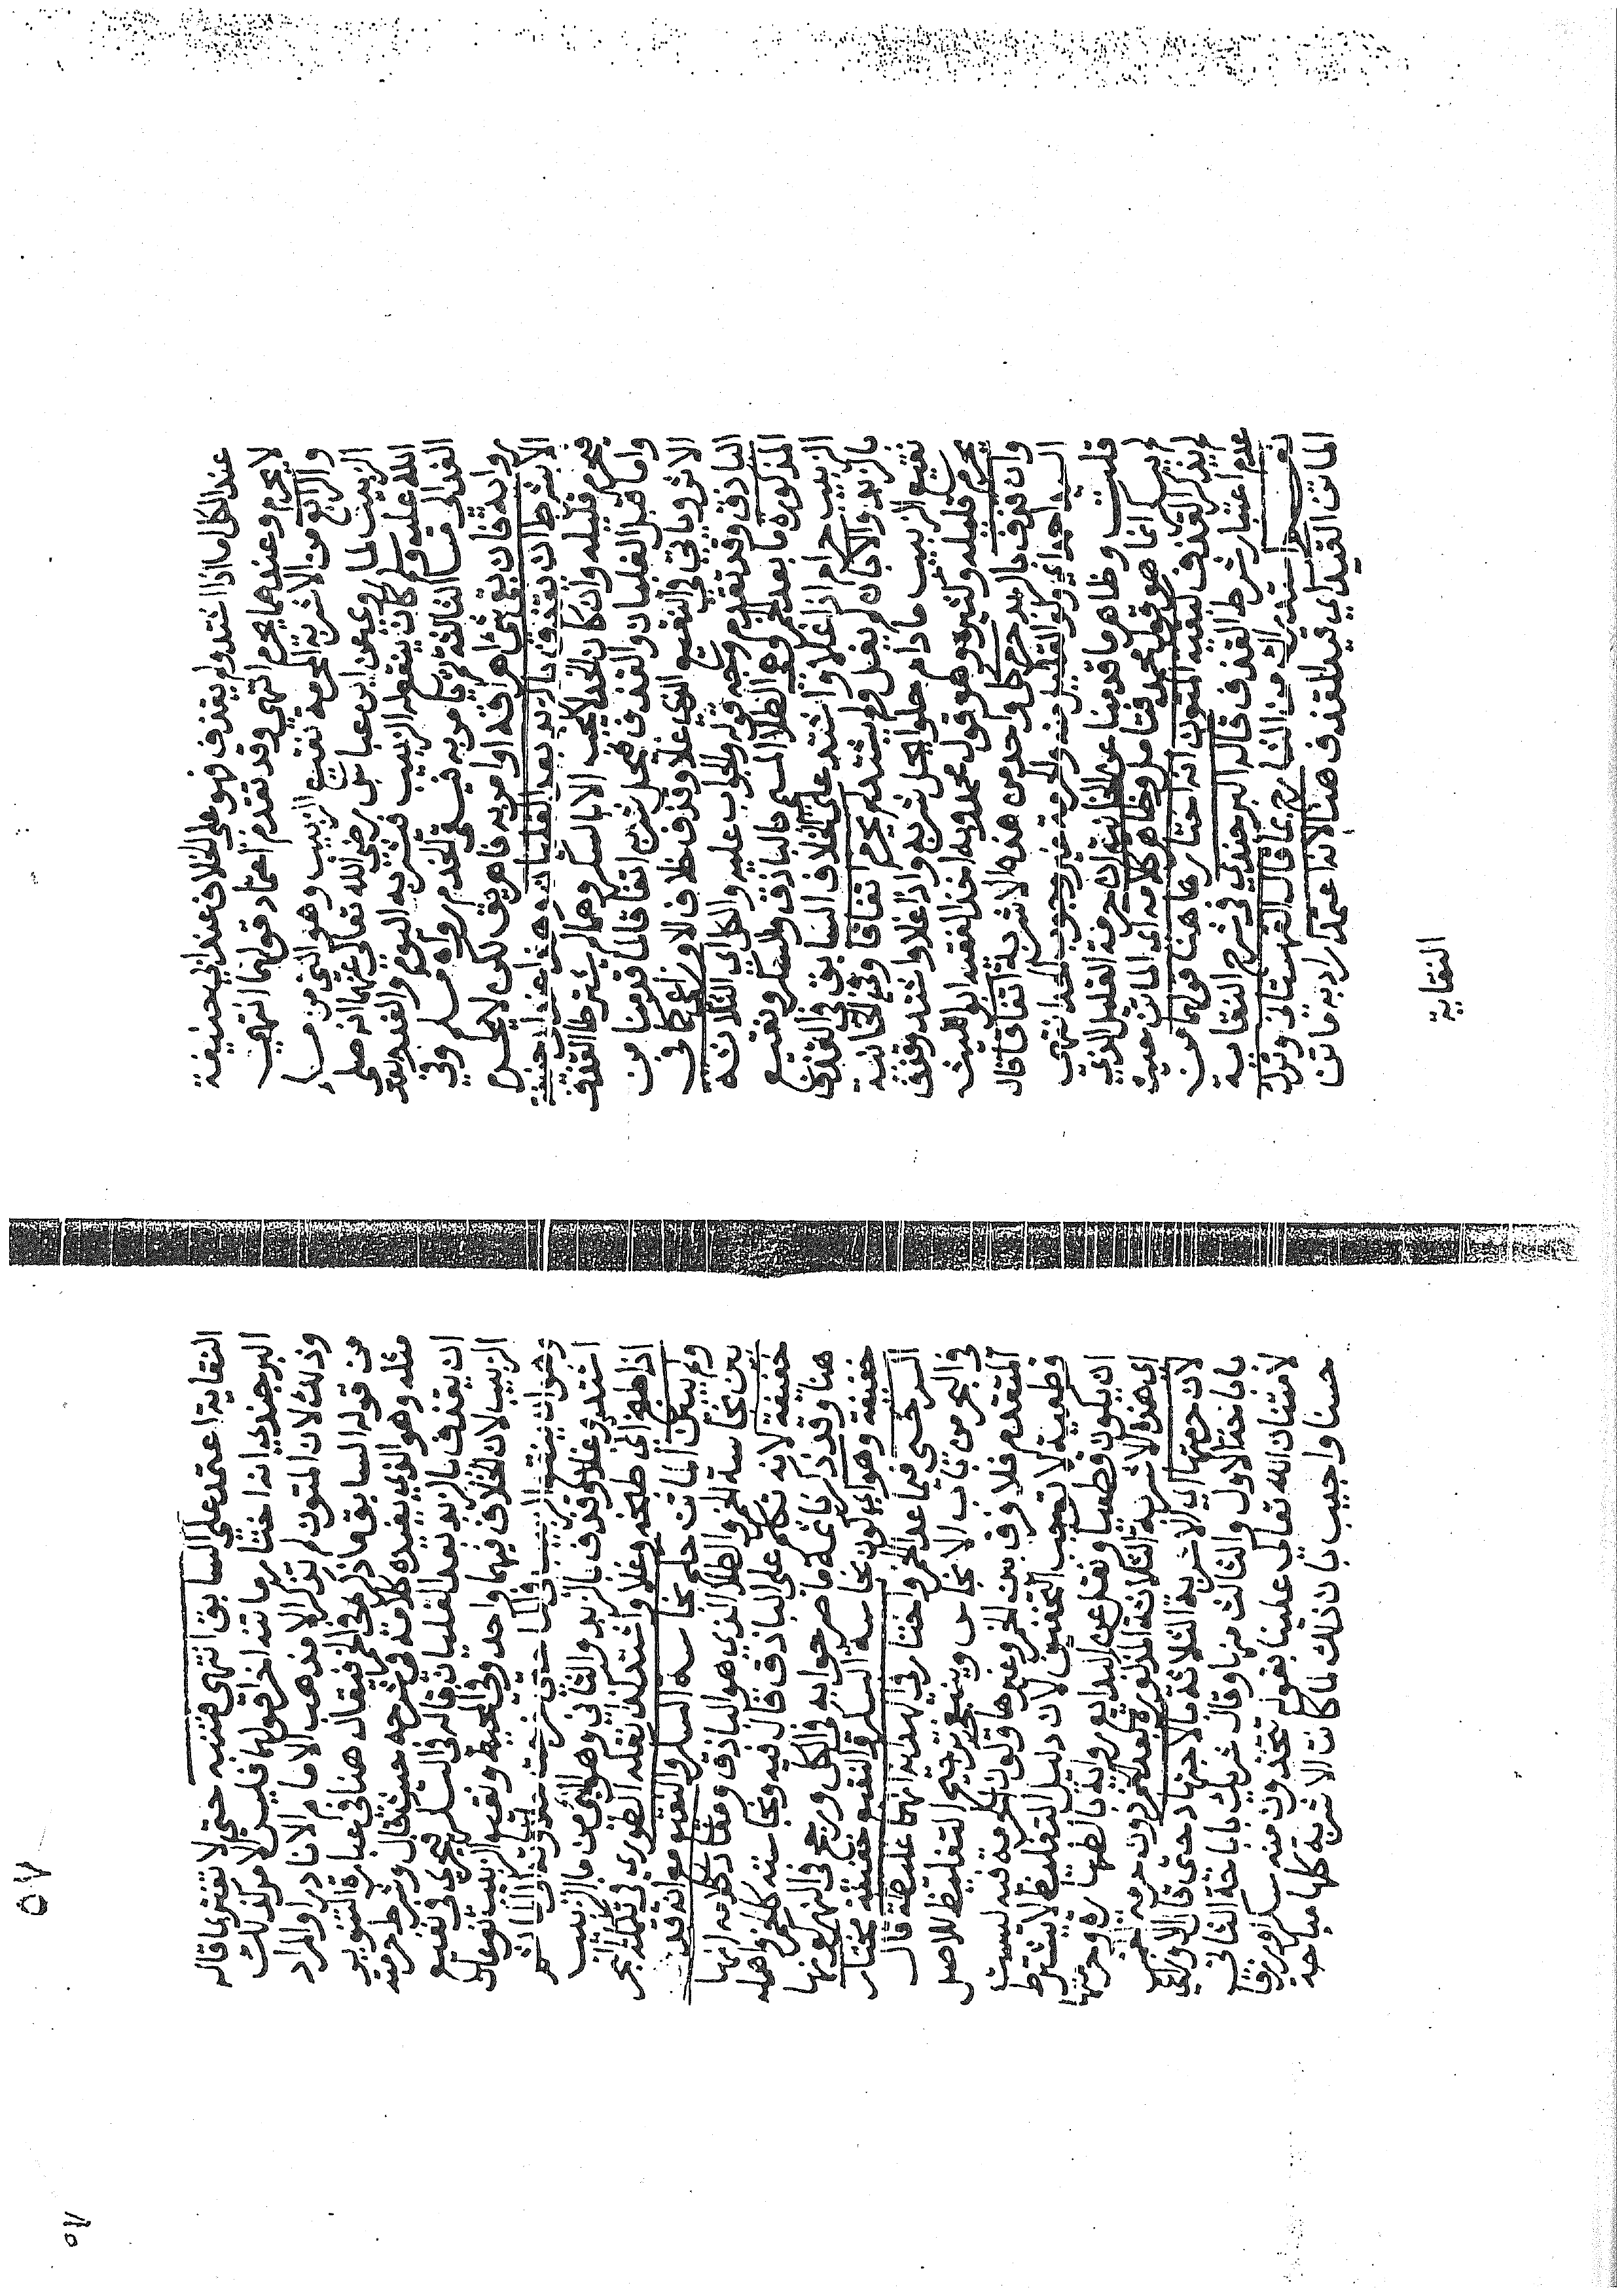 عند الكل اما اذا اشتد ولم يقذف فهو على الخلاف عند ابي حنيفة
لا يحرم وعندهما يحرم انتهى وقد تقدم اعتماد قولهما انتهى
والرابع من الاشربة المحرمة نقيع الزبيب وهو الني من ماء
الزبيب لما روي عن ابن عباس رضي الله تعالى عنهما انه صلى
الله عليه وسلم كان ينقع له الزبيب فيشربه اليوم والغد وبعد
الغد الى مساء الثالثة ثم يامر به فيسقى الخدم رواه مسلم وفي
رواية فان بقي شئ اهراقه او امر به فاهريق لكن لا يحرم
الا بشرط ان يقذف بالزبد بعد الغليان وهذا عند ابي حنيفة
فيحرم قليله وان كان الحد لا يجب الا بالسكر وهما لم يشترطا القذف
واما قبل الغليان والقذف فيحل شربه اتفاقا لما قدمنا من
الاثر وياتي في النقيع الذي غلا وقذف خلاف الاوزاعي كما في
الباذق وقد تقدم وجه قوله والجواب عليه والكل اي الثلاثة
المذكورة ما بعد الخمر وهو الطلا المسمى بالباذق والسكر ونقيع
الزبيب حرام اذا غلا واشتد على الخلاف السابق في القذف
بالزبد والا بان لم يغل ولم يشتد لم يحرم اتفاقا وفي الخانية
نقيع الزبيب ما دام حلوا يحل شربه واذا غلا واشتد وقذف
يحرم قليله وكثيره وهو قول محمد وبه اخذ الفقيه ابو الليث
وان قذف بالزبد حرم كل واحد من هذه الاشربة اتفاقا قال
السيد احمد اي ولو القليل منه والحرمة غير وجوب الحد انتهى
قلت وظاهر ما قدمنا عن الخانية ان حرمة القليل الذي
لم يسكر انما هو قول محمد فتامل وظاهر كلامه اي الماتن حيث
لم يذكر القذف لبقية المتون انه اختار ها هنا قولهما من
عدم اعتبار شرط القذف قاله البرجندي في شرح النقاية
نعم استدراك من الشارح بما قال القهستاني وترك
الماتن القيد اي قيد القذف هنا لانه اعتمد اراد به ماتن
النقاية
٥٧
النقاية اعتمد على السابق انتهى فتنبه حتى لا تغتر بما قاله
البرجندي انه اختار ماتنه اخر قولهما فليس الامر كذلك
وذلك لان المتون لم تذكر الا مذهب الامام الا نادرا والمراد
من قوله السابق ما ذكر في الخمر فيقال هنا في عبارة التنوير
مثله وهو الذي يفيده كلامه في شرحه حيث قال وشرط حرمته
ان يقذف بالزبد بعد الغليان قاله في السكر فيجري في نقيع
الزبيب لان الخلاف فيهما واحد وفي المحيط ونقيع الزبيب نوعان
وهو ان ينقع الزبيب في الماء حتى خرجت حلاوته الى الماء ثم
اشتد وغلا وقذف بالزبد والثاني وهو الني من ماء الزبيب
اذا طبخ اي طبخه وغلا واشتد كذا نقله الطوري في تكملة البحر
ولم يبين الماتن حكم نجاسة السكر والنقيع مع انه قد
بين نجاسة الخمر والطلا الذي هو الباذق ومفاد كلامه انها
خفيفة لانه تكلم على الباذق قال فيه ونجاسته كالخمر واهمله
هنا وقد ذكر ثمة ما صرحوا به في الكل ورجح في النهر كونها
خفيفة وهو اي كون نجاسة السكر والنقيع خفيفة مختار
السرخسي فيما عدا الخمر واختار في الهداية انهما غليظة قال
في البحر من باب الانجاس وينبغي ترجيح التغليظ للاصل
المتقدم فلا فرق بين الخمر وغيرها وكون الحرمة فيه ليست
قطعية لا توجب التخفيف لان دليل التغليظ لا يشترط
ان يكون قطعيا ونقل عن البدايع رواية بالطهارة وحرمتها
اي هذه الاشربة الثلاثة المذكورة بعد الخمر دون حرمة الخمر
لان حرمتها اي الاشربة الثلاثة بالاجتهاد حتى قال الاوزاعي
باباحة الاول والثالث منها وقال شريك باباحة الثاني
لامتنان الله تعالى علينا بقوله تتخذون منه سكرا ورزقا
حسنا واجيب بان ذلك لما كانت الاشربة كلها مباحة